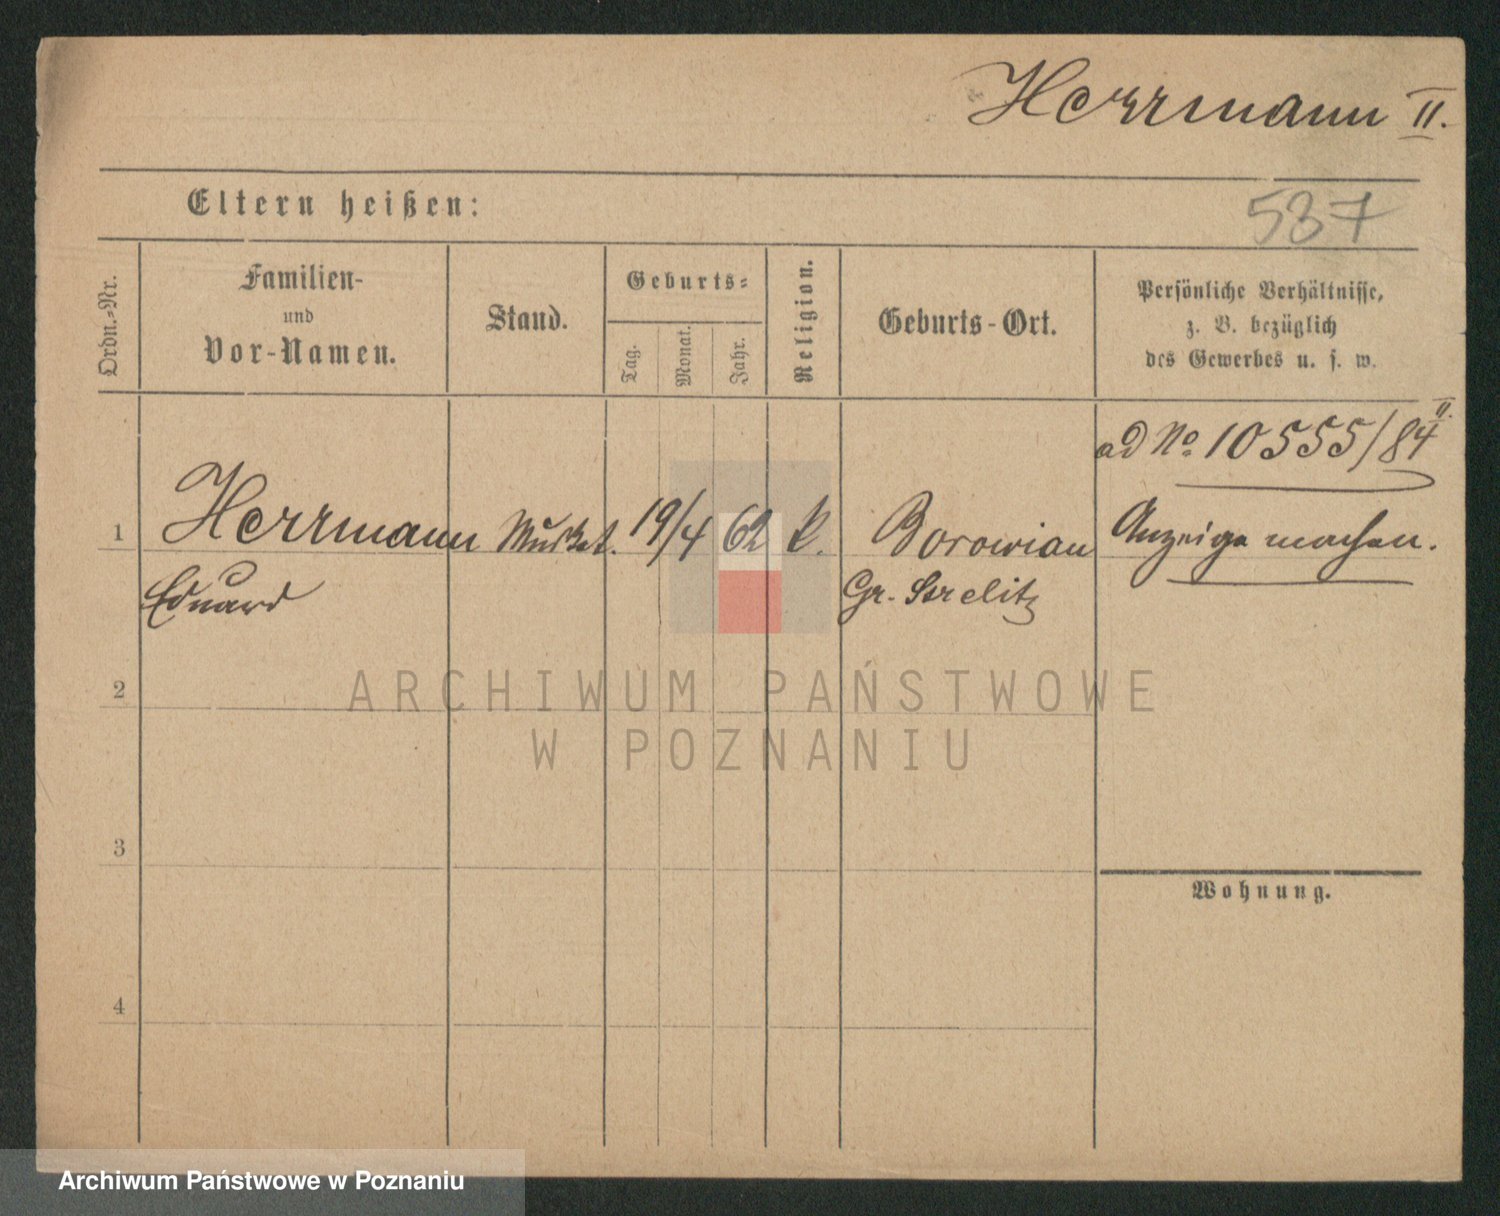 Herrmann II.
Eltern heißen:
537
Ordn.-Nr.
Familien-
und
Vor-Namen.
Stand.
Geburts-
Tag.
Monat.
Jahr.
Religion.
Geburts-Ort.
Persönliche Verhältnisse,
z. B. bezüglich
des Gewerbes u. s. w.
ad No 10555/84 II.
1 Herrmann Musket. 19/4 62 k. Borowian Anzeige machen.
Eduard Gr. Strelitz
2
ARCHIWUM PAŃSTWOWE
W POZNANIU
3
Wohnung.
4
Archiwum Państwowe w Poznaniu